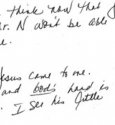 think now that
r. N won't be able
e.
Jesus came to me.
and God's hand is
. I see his little